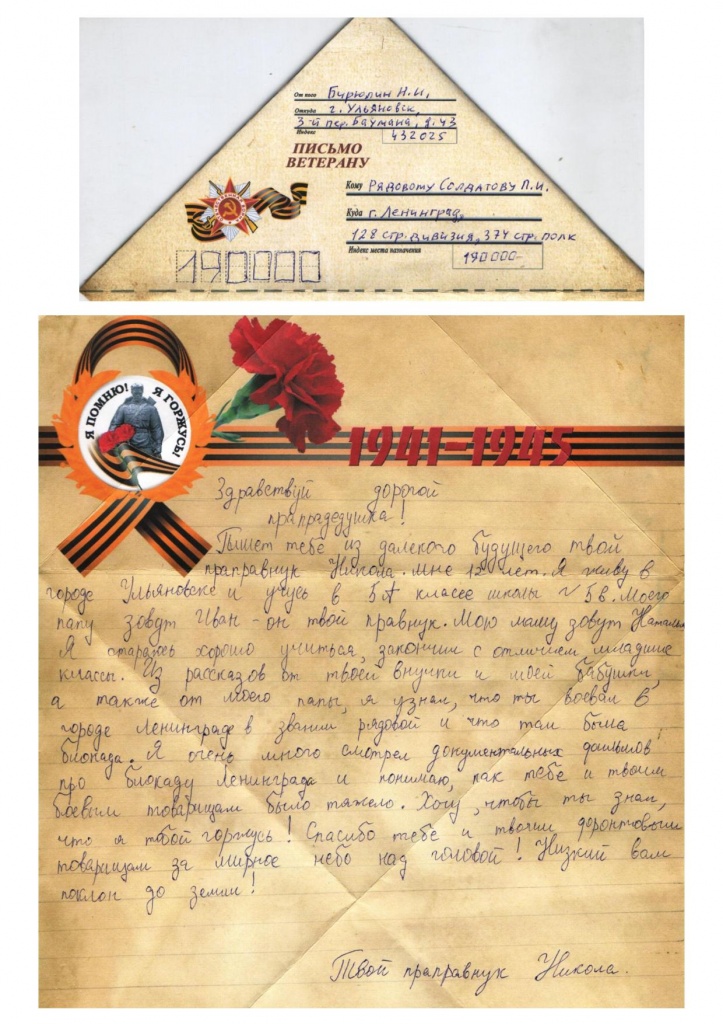 От кого Бирюлин Н.И.
Откуда г. Ульяновск,
3-й пер. Баумана, д. 43
Индекс 432025
ПИСЬМО
ВЕТЕРАНУ
Кому Рядовому Солдатову П.И.
Куда г. Ленинград,
128 стр. дивизия, 374 стр. полк
Индекс места назначения 190000
190000
Я ПОМНЮ! Я ГОРЖУСЬ!
1941-1945
Здравствуй дорогой
прапрадедушка!
Пишет тебе из далекого будущего твой
праправнук Никола. Мне 12 лет. Я живу в
городе Ульяновске и учусь в 5А классе школы №5в. Моего
папу зовут Иван - он твой правнук. Мою маму зовут Наталья
Я стараюсь хорошо учиться, закончил с отличием младшие
классы. Из рассказов от твоей внучки и моей бабушки,
а также от моего папы, я узнал, что ты воевал в
городе Ленинграде в звании рядовой и что там была
блокада. Я очень много смотрел документальных фильмов
про блокаду Ленинграда и понимаю, как тебе и твоим
боевым товарищам было тяжело. Хочу, чтобы ты знал,
что я тобой горжусь! Спасибо тебе и твоим фронтовым
товарищам за мирное небо над головой! Низкий вам
поклон до земли!
Твой праправнук Никола.